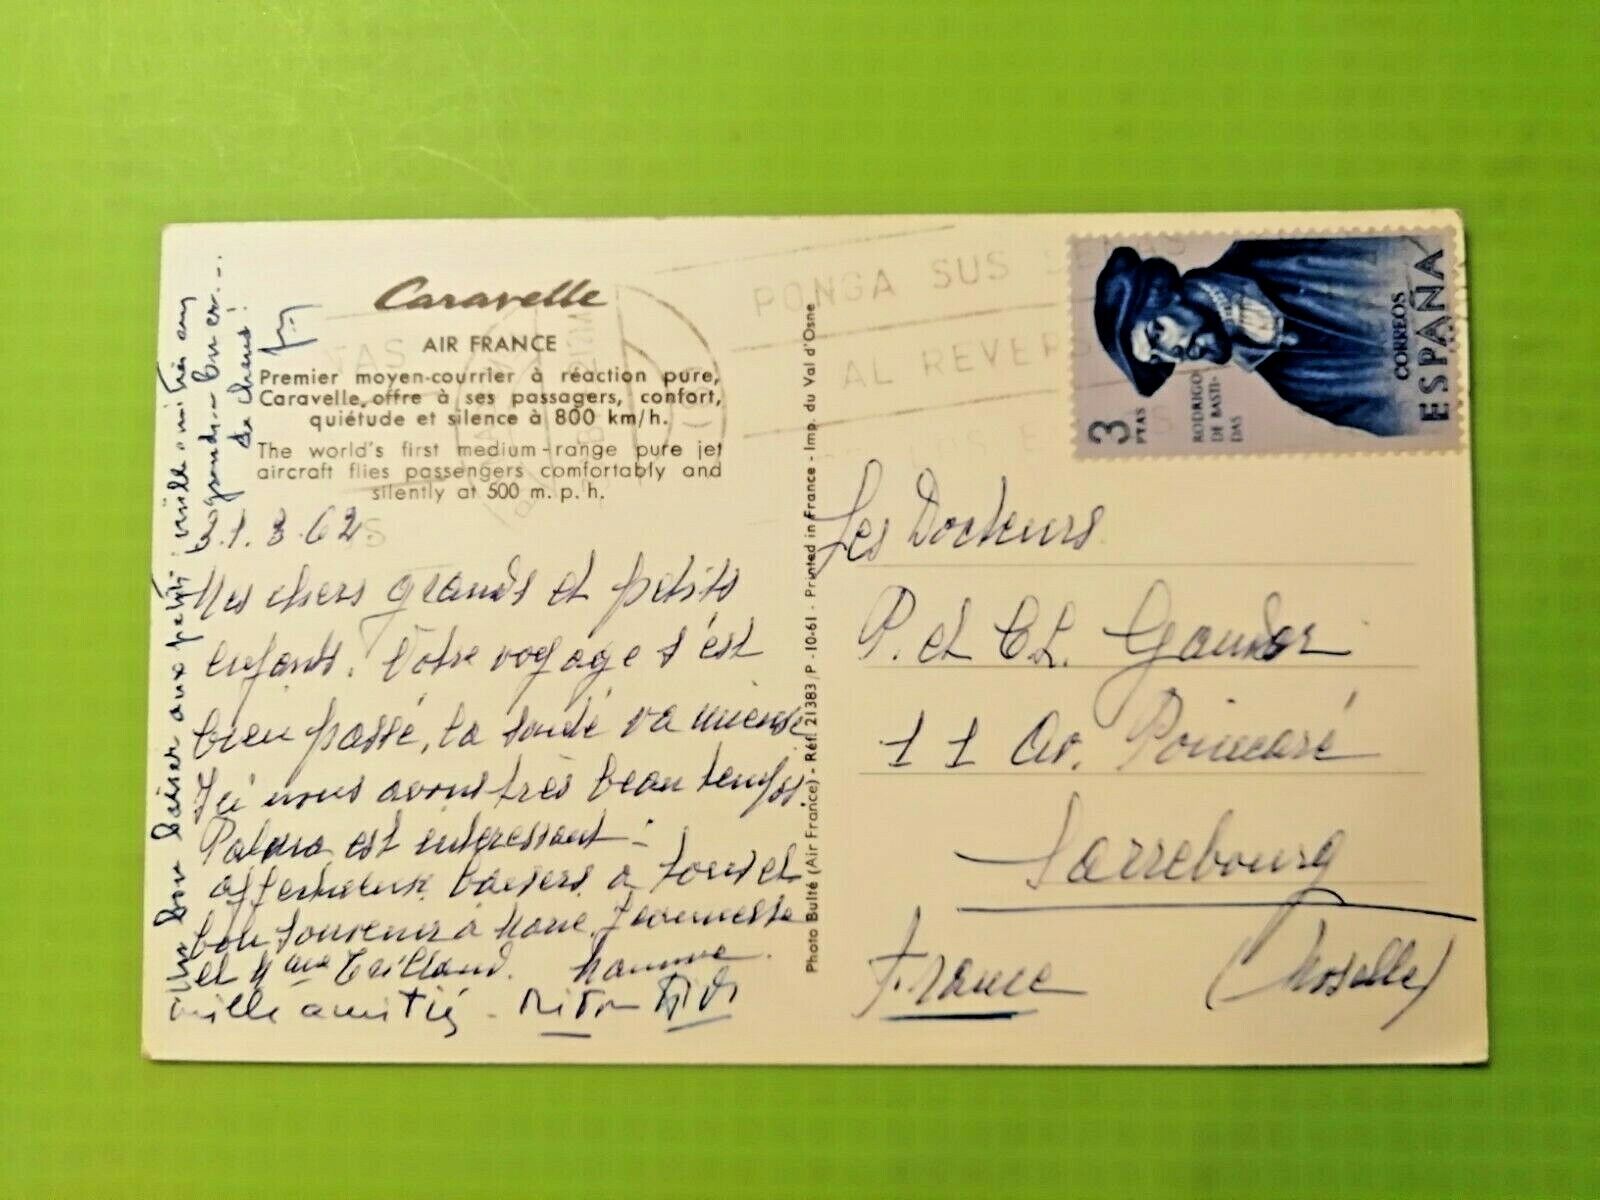 Caravelle
AIR FRANCE
Premier moyen-courrier à réaction pure,
Caravelle, offre à ses passagers, confort,
quiétude et silence à 800 km/h.
The world's first medium-range pure jet
aircraft flies passengers comfortably and
silently at 500 m.p.h.
31.3.62
Mes chers grands et petits
enfants. Votre voyage s'est
bien passé, la santé va mieux
Ici nous avons très beau temps.
Palma est interessant:
affectueux baisers a tous et
bon souvenir à
et Mme Nanine.
mille amitiés - 
Un bon baiser aux petits mille amitiés aux
grands
de chiens!
Photo Bulté (Air France) - Réf. 21383/P - 10-61 - Printed in France - Imp. du Val d'Osne
PONGA SUS SEÑAS
AL REVERSO
3
PTAS
RODRIGO
DE BASTI-
DAS
CORREOS
ESPAÑA
Les Docteurs
P. et Cl.
11 Av. Poincaré
Sarrebourg
France (Moselle)